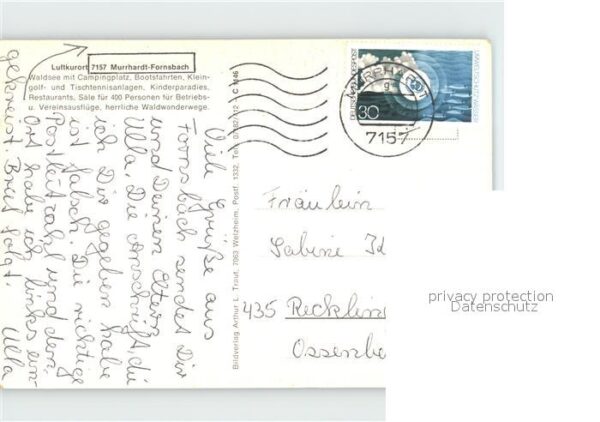 Luftkurort 7157 Murrhardt-Fornsbach
Waldsee mit Campingplatz, Bootsfahrten, Klein-
golf- und Tischtennisanlagen, Kinderparadies,
Restaurants, Säle für 400 Personen für Betriebs-
u. Vereinsausflüge, herrliche Waldwanderwege.
Viele Grüße aus
Fornsbach sendet Dir
und Deinen Eltern
Ulla. Die Anschrift, die
ich Dir gegeben habe
ist falsch. Die richtige
Postleitzahl und den
Ort habe ich links ein-
gekreist. Brief folgt. Ulla
Bildverlag Arthur L. Traut, 7063 Welzheim, Postf. 1332, Tel.
DEUTSCHE BUNDESPOST
30
MURRHARDT
g
7157
Fräulein
Sabine
435 Recklin
Ossenbe
privacy protection
Datenschutz